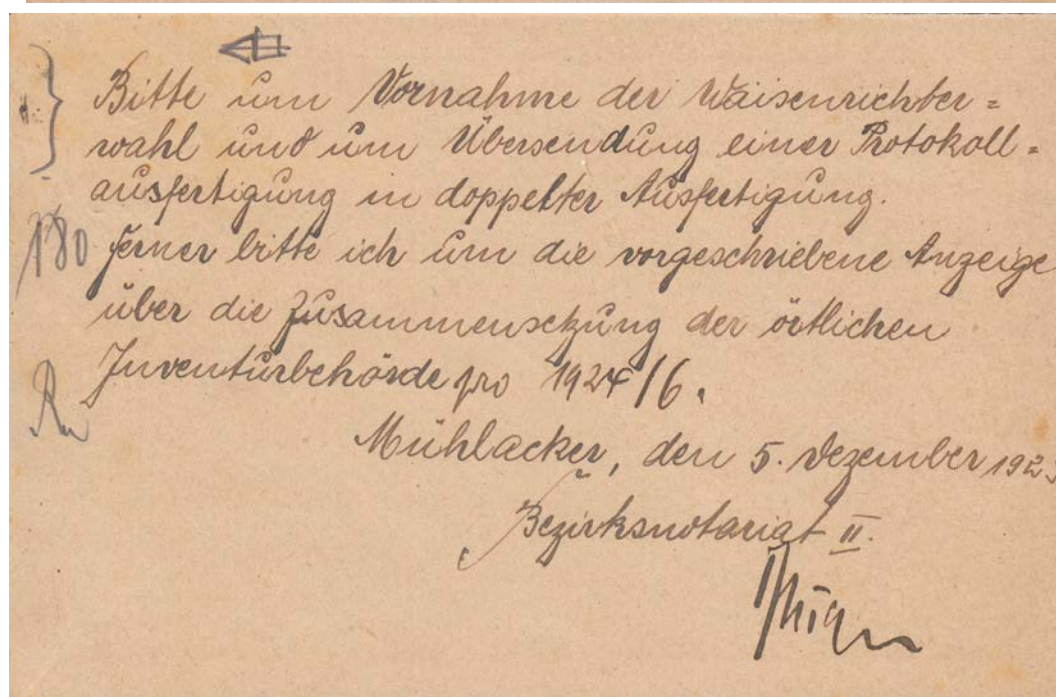 Bitte um Vornahme der Waisenrichter=
wahl und um Übersendung einer Protokoll=
ausfertigung in doppelter Ausfertigung.
180 ferner bitte ich um die vorgeschriebene Anzeige
über die Zusammensetzung der örtlichen
Inventurbehörde pro 1924/6.
Mühlacker, den 5. Dezember 192
Bezirksnotariat II.